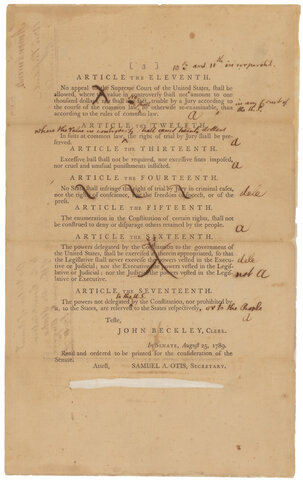 [ 3 ]
10th and 11th incorporated.
ARTICLE THE ELEVENTH.
No appeal to the Supreme Court of the United States, shall be
allowed, where the value in controversy shall not amount to one
thousand dollars, nor shall any fact, triable by a Jury according to
the course of the common law, be otherwise re-examinable, than
according to the rules of common law.
in any Court of
the U.S.
a
ARTICLE THE TWELFTH.
where the value in controversy shall exceed twenty dollars
In suits at common law, the right of trial by Jury shall be pre-
served.
a
ARTICLE THE THIRTEENTH.
Excessive bail shall not be required, nor excessive fines imposed,
nor cruel and unusual punishments inflicted.
a
ARTICLE THE FOURTEENTH.
No State shall infringe the right of trial by Jury in criminal cases,
nor the rights of conscience, nor the freedom of speech, or of the
press.
dele
ARTICLE THE FIFTEENTH.
The enumeration in the Constitution of certain rights, shall not
be construed to deny or disparage others retained by the people.
a
ARTICLE THE SIXTEENTH.
The powers delegated by the Constitution to the government of
the United States, shall be exercised as therein appropriated, so that
the Legislative shall never exercise the powers vested in the Execu-
tive or Judicial; nor the Executive the powers vested in the Legis-
lative or Judicial; nor the Judicial the powers vested in the Legis-
lative or Executive.
dele
not a
ARTICLE THE SEVENTEENTH.
to the U.S.
The powers not delegated by the Constitution, nor prohibited by
it, to the States, are reserved to the States respectively,
or to the People
a
Teste,
JOHN BECKLEY, CLERK.
In SENATE, August 25, 1789.
Read and ordered to be printed for the consideration of the
Senate.
Attest, SAMUEL A. OTIS, SECRETARY.